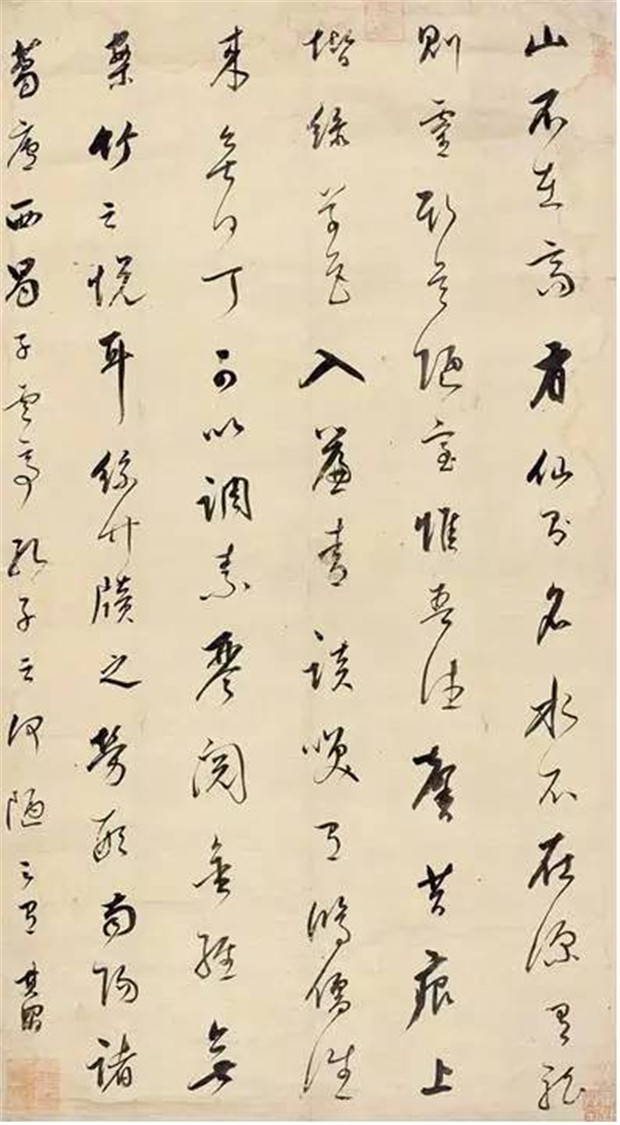 山不在高有仙則名水不在深有龍
則靈斯是陋室惟吾德馨苔痕上
堦綠草色入簾青談咲有鴻儒往
來無白丁可以調素琴閱金經無
案竹之悅耳絲竹牘之勞形南陽諸
葛廬西蜀子雲亭孔子云何陋之有 其昌